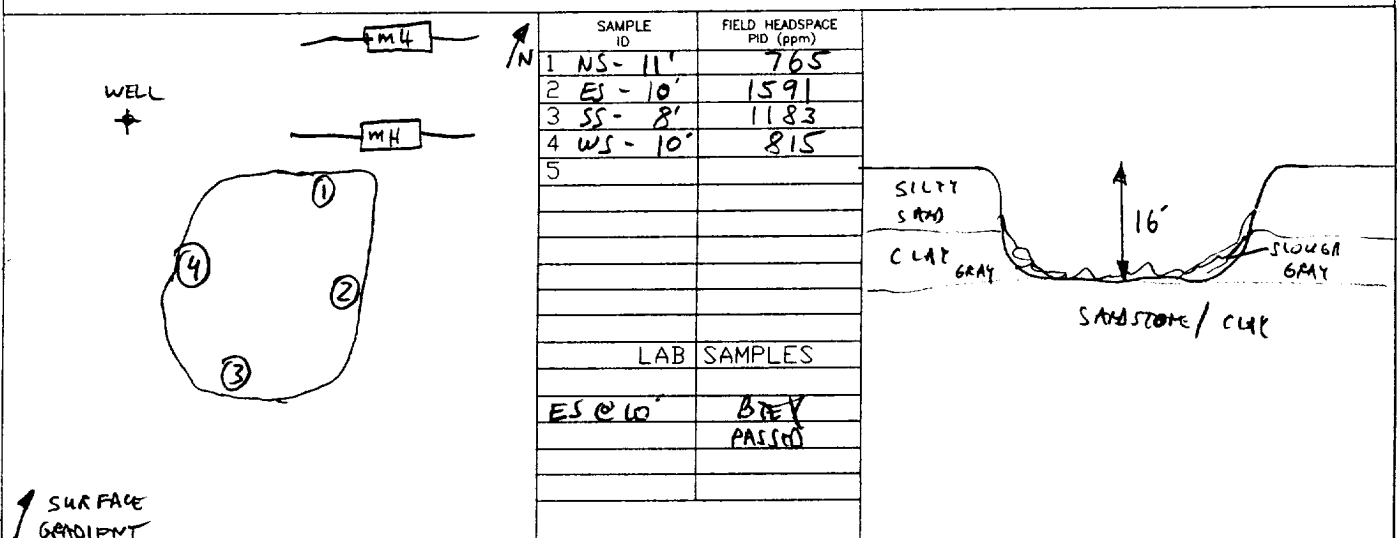 m4
N
WELL
mH
1
4
2
3
SURFACE
GRADIENT
SAMPLE ID FIELD HEADSPACE PID (ppm)
1 NS - 11' 765
2 ES - 10' 1591
3 SS - 8' 1183
4 WS - 10' 815
5
LAB SAMPLES
ES @ 10' BTEX
PASSED
SILTY
SAND
16'
CLAY
GRAY
SLOUGH
GRAY
SANDSTONE / CLAY